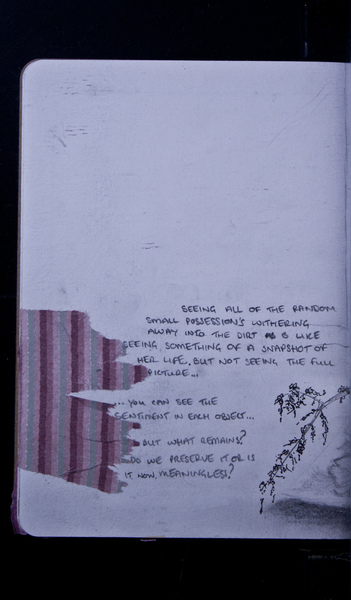 SEEING ALL OF THE RANDOM
SMALL POSSESSION'S WITHERING
AWAY INTO THE DIRT IS LIKE
SEEING SOMETHING OF A SNAPSHOT OF
HER LIFE, BUT NOT SEEING THE FULL
PICTURE...
...YOU CAN SEE THE
SENTIMENT IN EACH OBJECT...
BUT WHAT REMAINS?
DO WE PRESERVE IT OR IS
IT NOW MEANINGLESS?